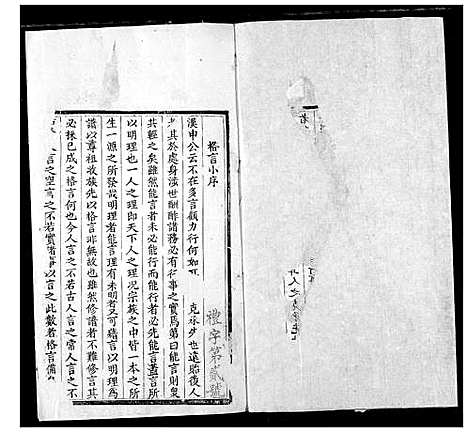 格言小序
漢申公云不在多言顧力行何如
克承步也遠貽後人
其於處身涉世酬酢諸務必有行事之實焉第曰能言則衆
共輕之矣雖然能言者未必能行而能行者必先能言能言
以明理也一人之理即天下人之理況宗族之中皆一本之所
生一源之所發哉明理者能言理有未明者可藉言以明理為
譜以尊祖故族先以格言非無故也雖然修譜者不難修言其
必抹已成之格言何也今人言之不若古人言之常人言之不
言之空言之不若實者言之此數者格言備
禮字第貳號